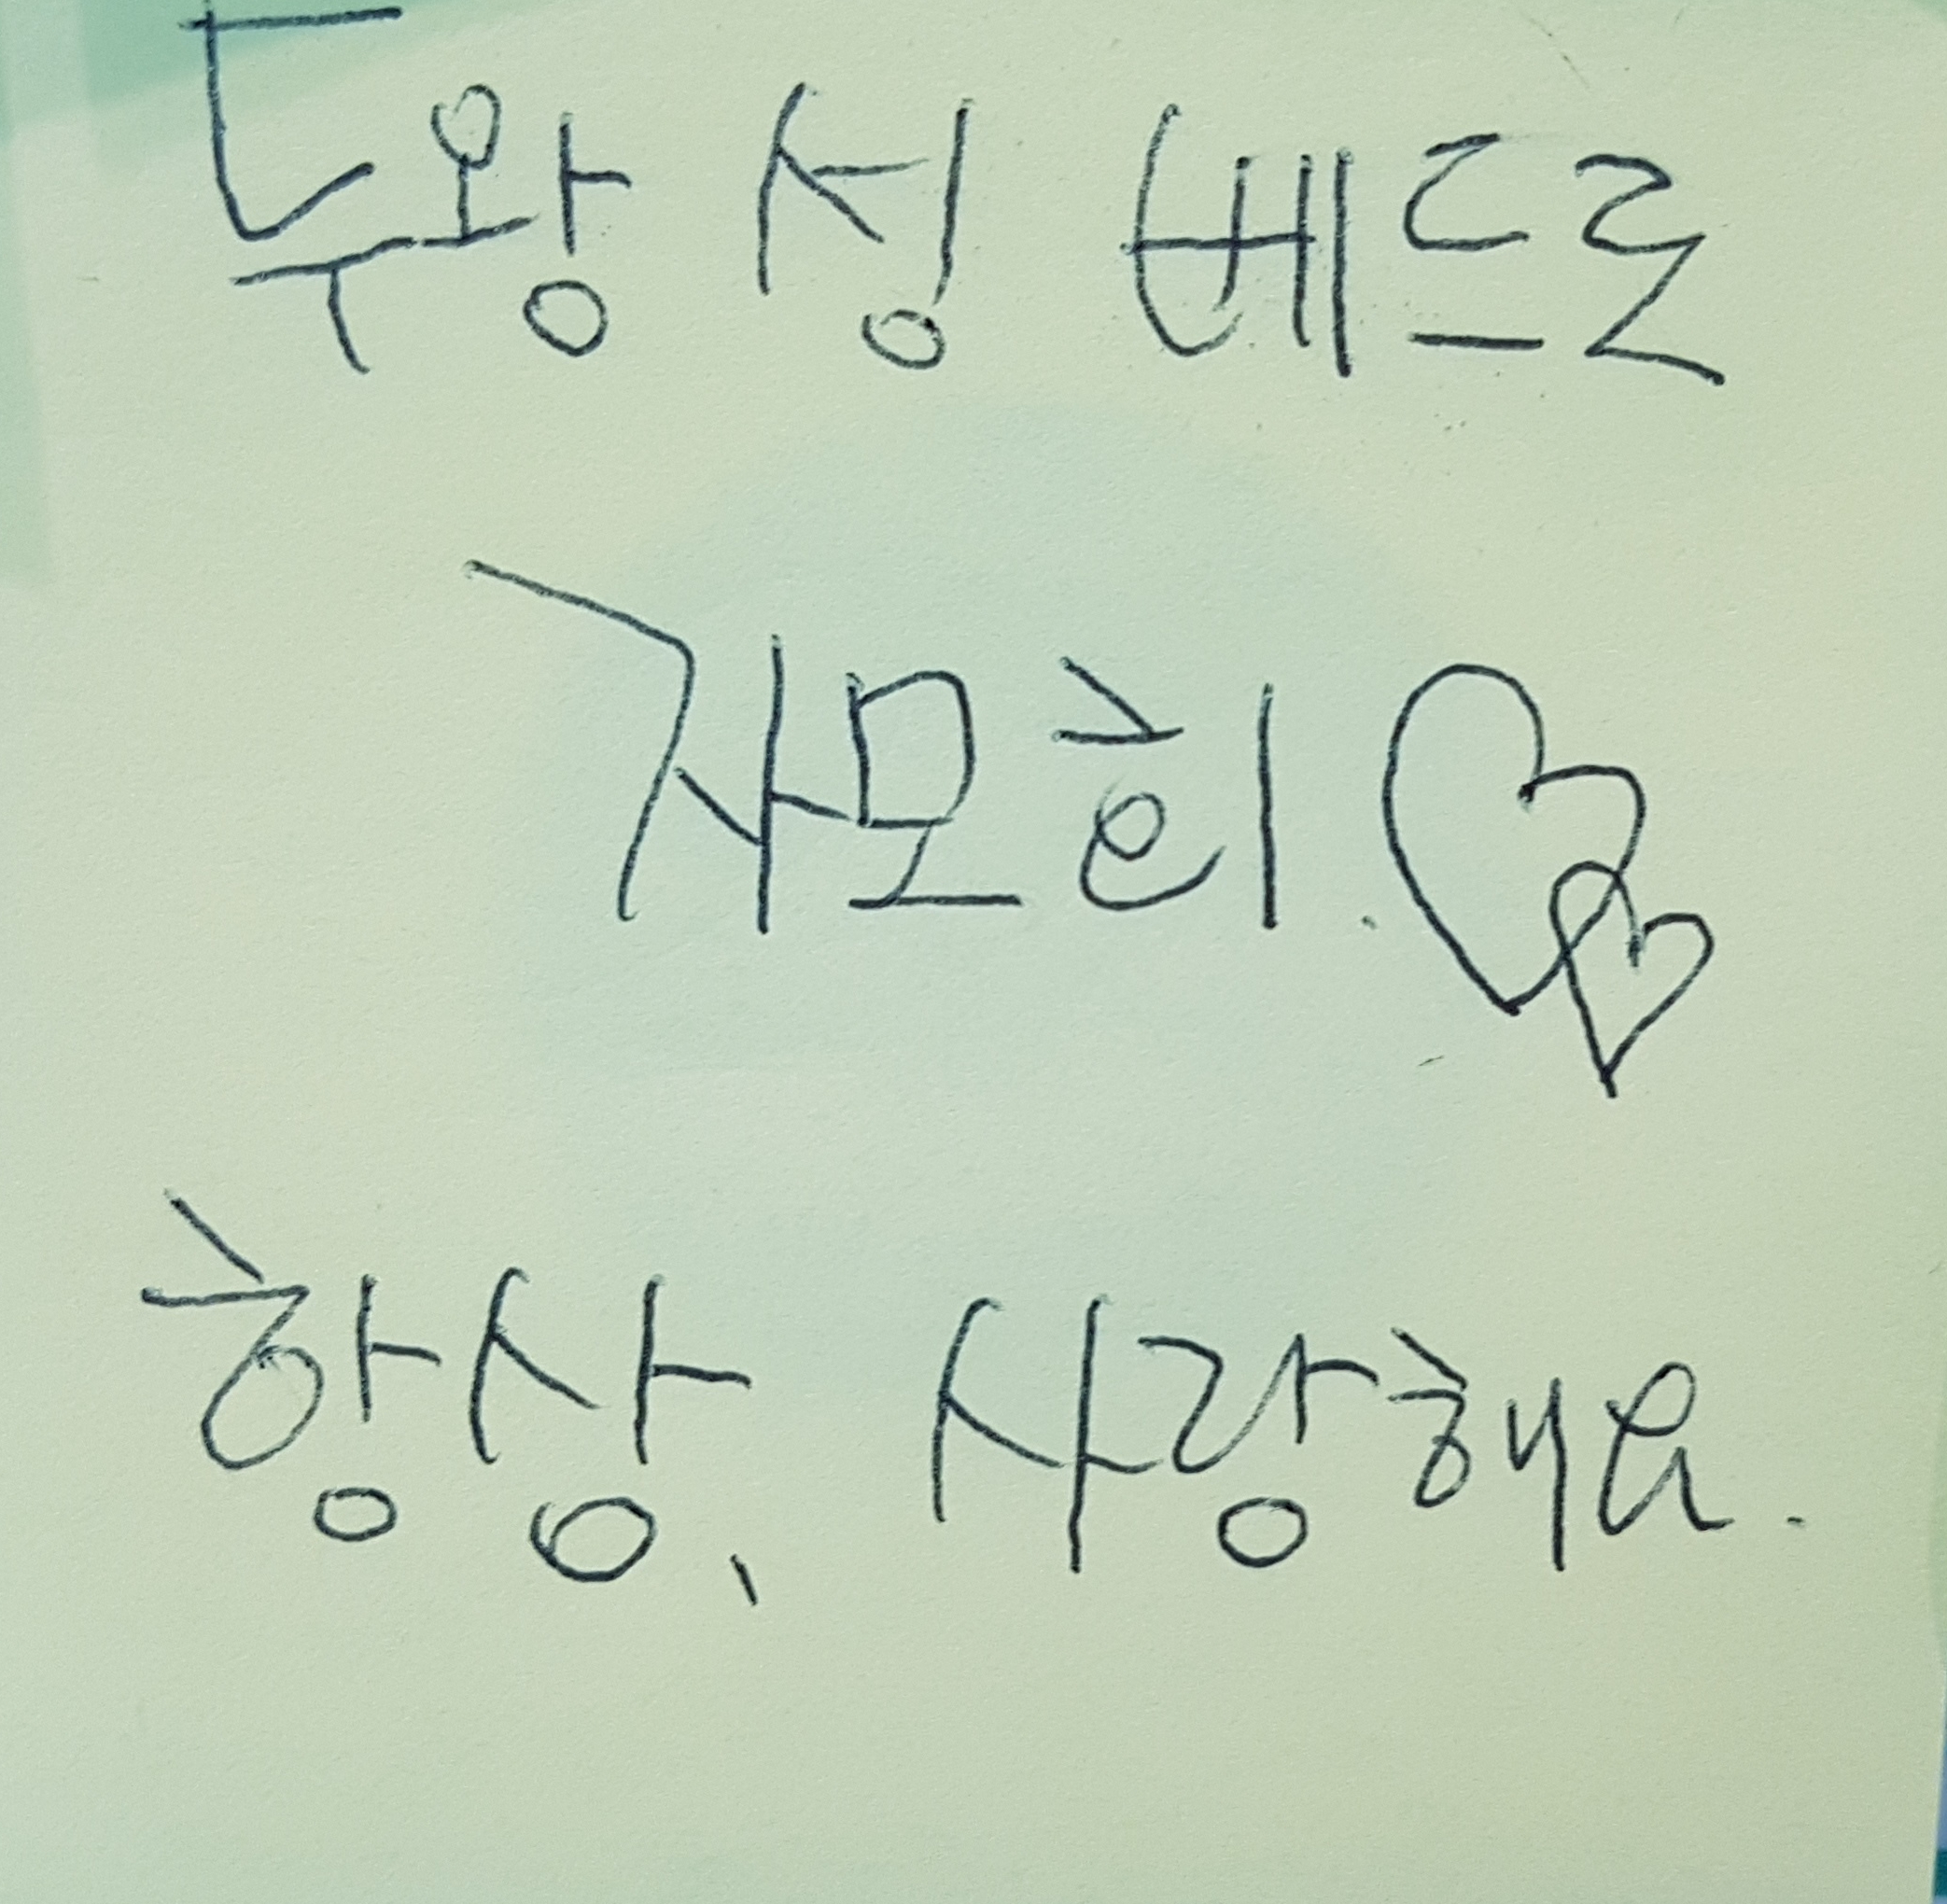 두왕 성 베드로
자모회.
항상, 사랑해요.